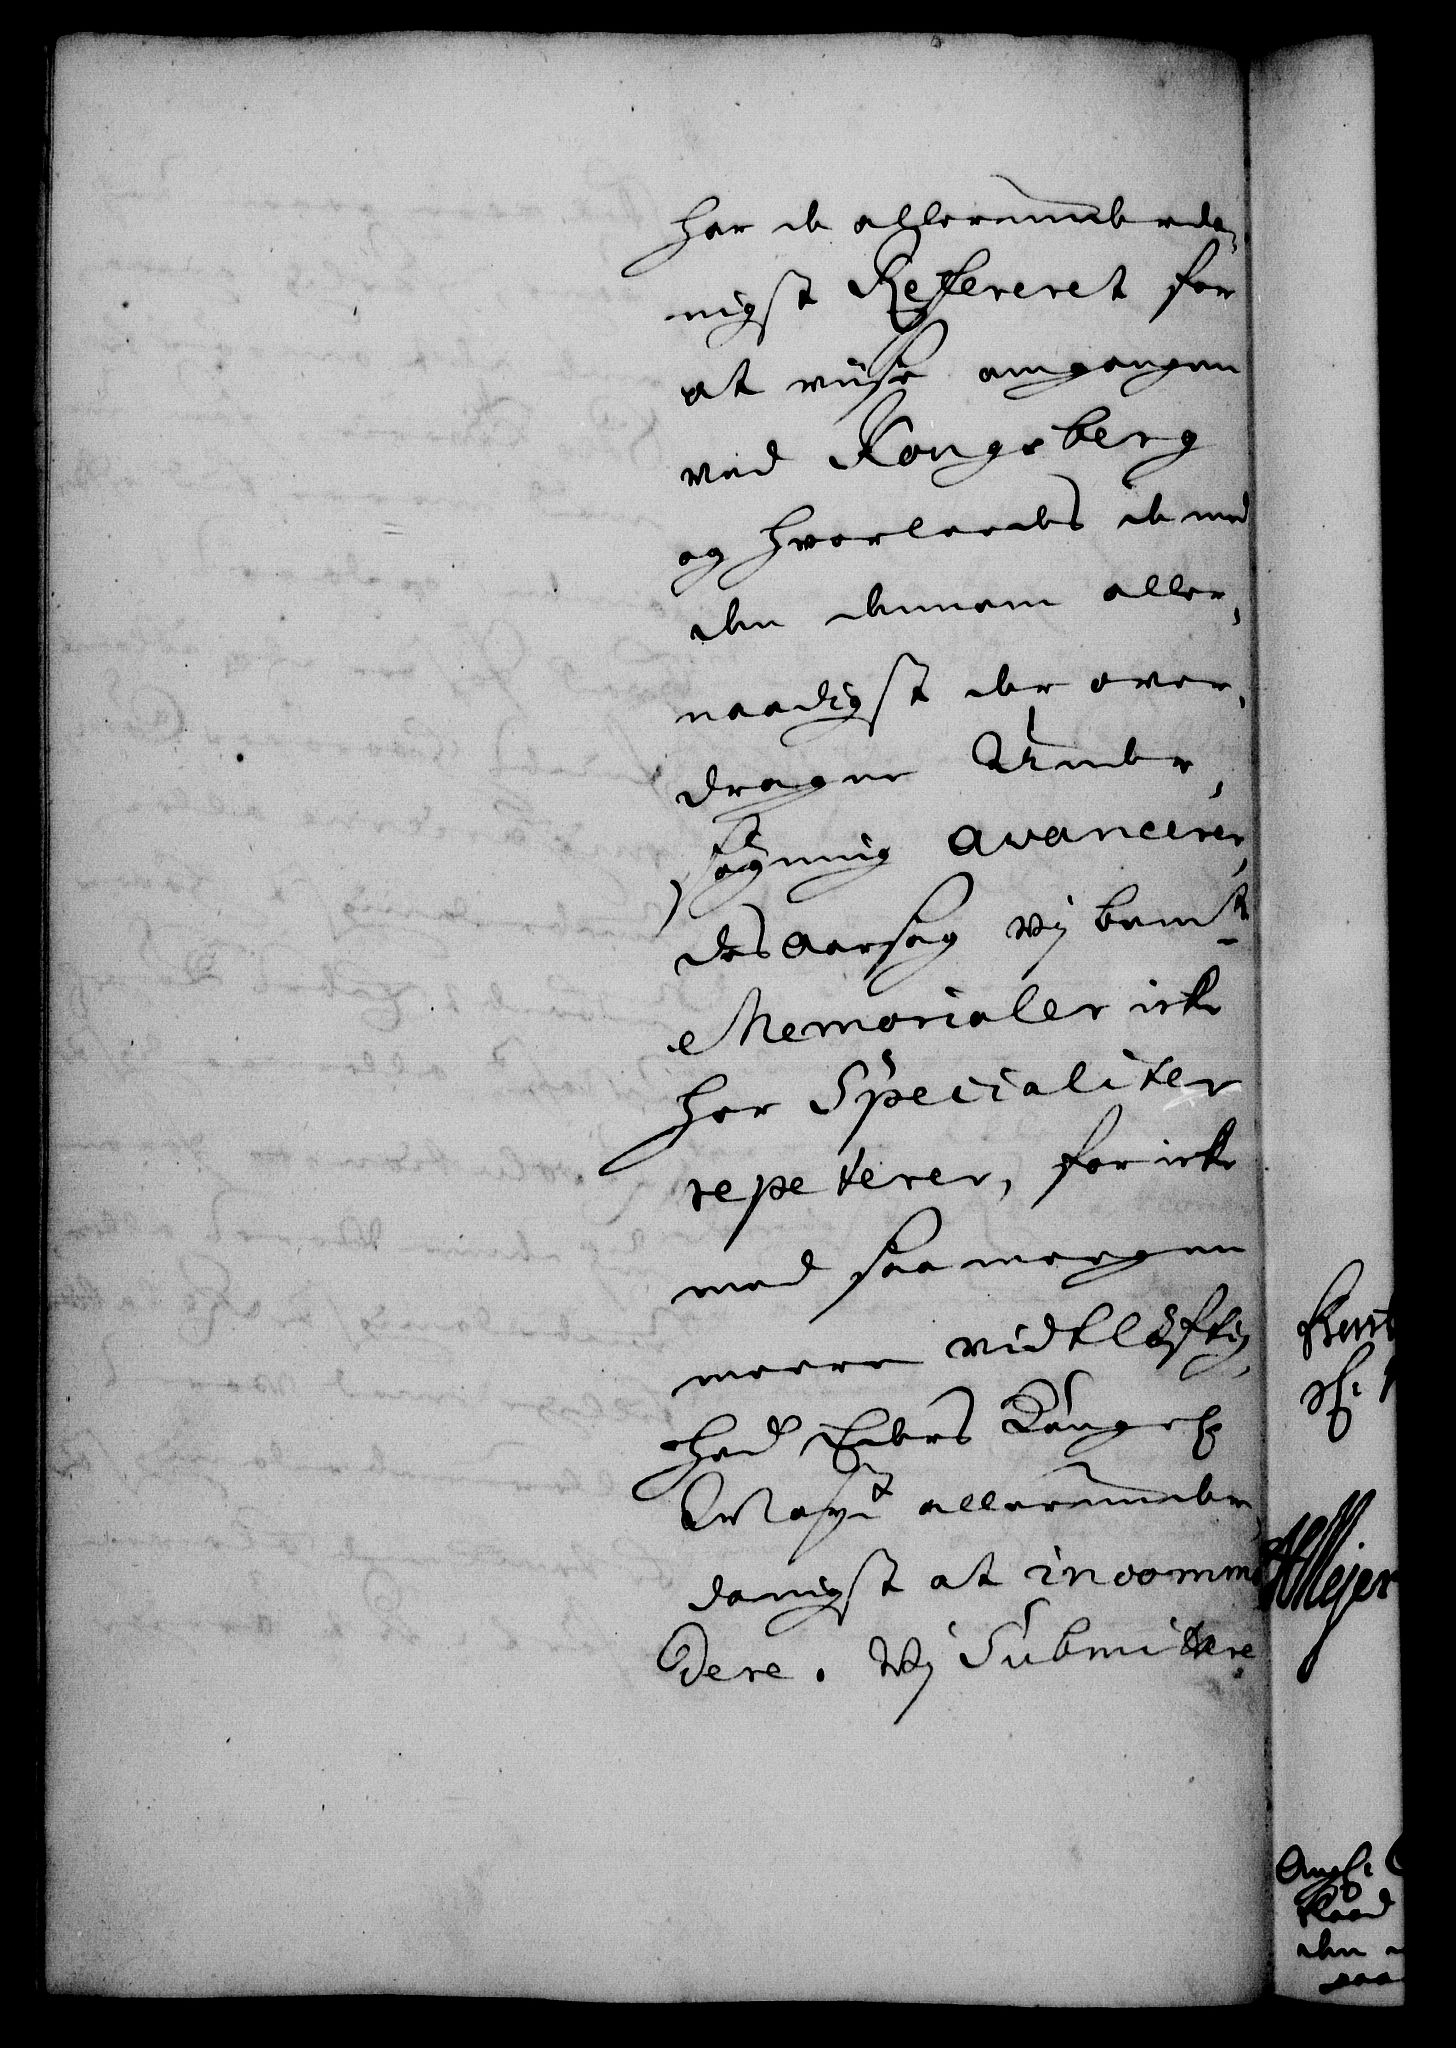 har de allerunderda,
nigst Refereret for
at viise omgangen
ved Kongsberg
og hvorleedes de med
den dennem aller,
naadigst der over,
dragne Under,
søgning avancerer,
des Aarsag Vj bemt
Memorialer icke
her Specialiter
repeterer, for icke
med saa megen
meere vidtløftig,
hed Eders Kongel
Mayt allerunder,
danigst at incommo
dere. Vj Submittere
HMejer
Raad
den